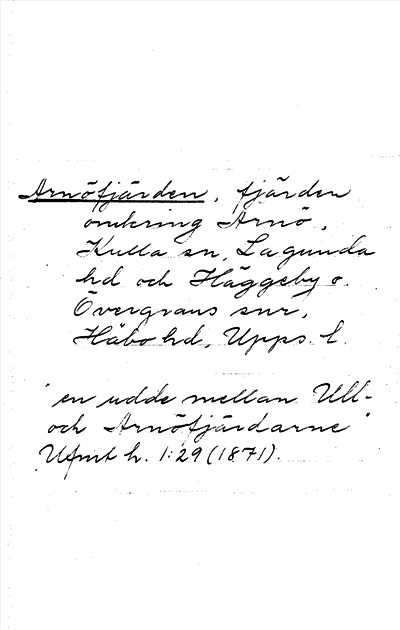 Arnöfjärden, fjärden
omkring Arnö,
Kulla sn, Lagunda
hd och Häggeby o.
Övergrans snr,
Håbo hd, Upps. l.
"en udde mellan Ull-
och Arnöfjärdarne"
Ufmt h. 1:29 (1871).